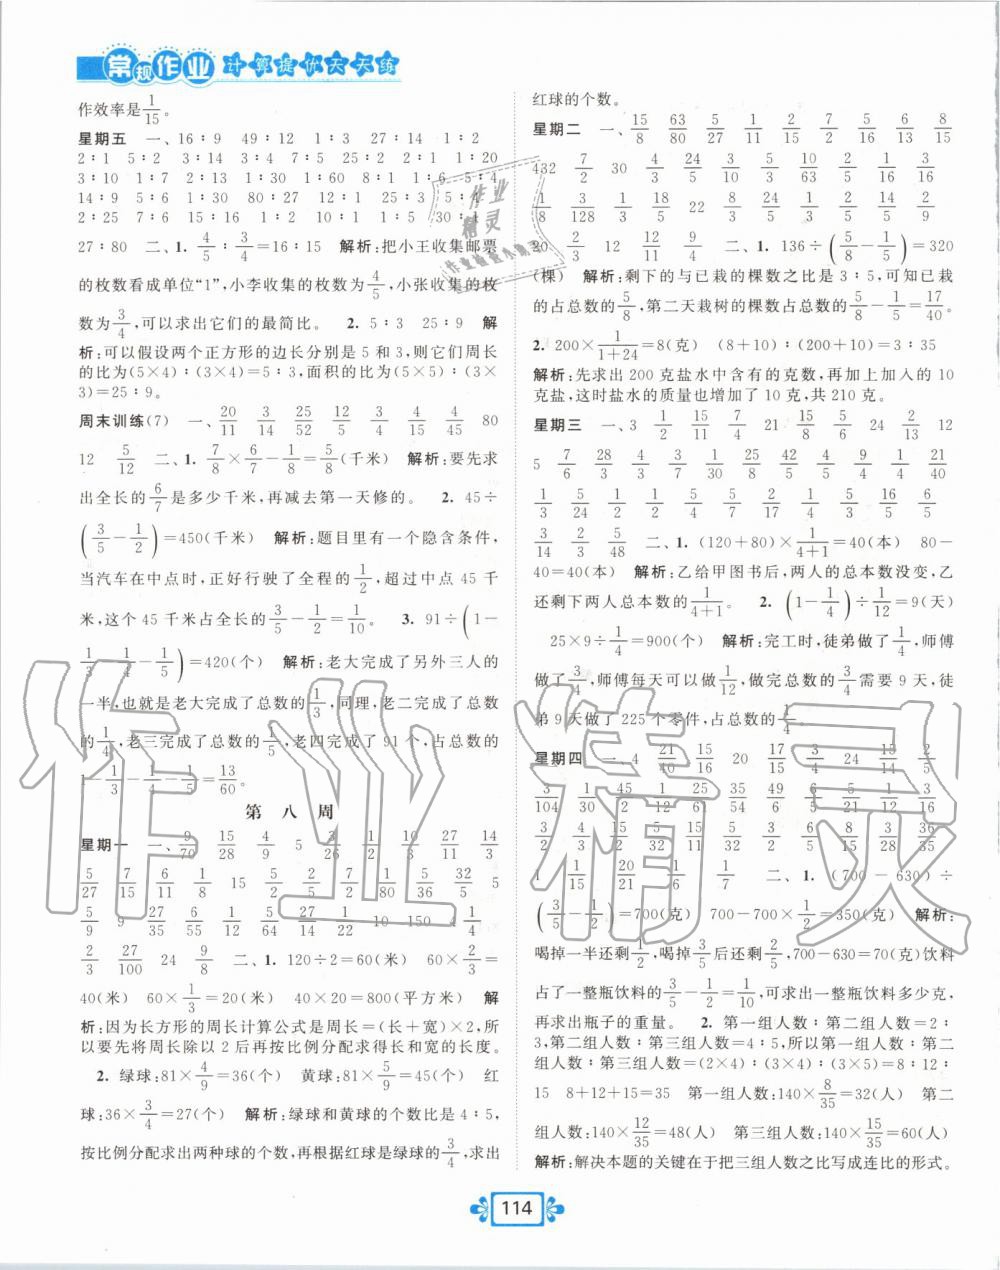 常规作业 计算提优天天练
作效率是1/15。
星期五 一、16∶9 49∶12 1∶3 27∶14 1∶2
2∶1 5∶2 3∶14 3∶4 7∶5 2∶1 1∶20
3∶10 1∶7 2∶1 30∶1 8∶1 1∶6 5∶4
14∶9 5∶6 1∶30 80∶27 12∶1 25∶16
2∶25 7∶6 15∶14 10∶1 1∶2 4∶1
27∶80 二、1. 4/5∶3/4=16∶15 解析:把小王收集邮票
的枚数看成单位“1”,小李收集的枚数为4/5,小张收集的枚
数为3/4,可以求出它们的最简比。 2. 5∶3 25∶9 解
析:可以假设两个正方形的边长分别是 5 和 3,则它们周长
的比为(5×4)∶(3×4)=5∶3,面积的比为(5×5)∶(3×
3)=25∶9。
周末训练(7) 一、20/11 3/14 25/52 12/5 3/4 4/15 4/45 80
12 5/12 二、1. 7/8×6/7-1/8=5/8(千米) 解析:要先求
出全长的6/7是多少千米,再减去第一天修的。 2. 45÷
(3/5-1/2)=450(千米) 解析:题目里有一个隐含条件,
当汽车在中点时,正好行驶了全程的1/2,超过中点 45 千
米,这个 45 千米占全长的3/5-1/2=1/10。 3. 91÷(1-
1/3-1/4-1/5)=420(个) 解析:老大完成了另外三人的
一半,也就是老大完成了总数的1/3,同理,老二完成了总数
的1/4,老三完成了总数的1/5,老四完成了 91 个,占总数的
1-1/3-1/4-1/5=13/60。
第 八 周
星期一 一、9/70 15/28 4/9 5 3/26 1/2 10/11 27/11 14/3
5/27 7/15 6/11 9/28 15 5/2 2/5 7/2 1/80 5/36 32/5 5
5/9 9 27/35 6/55 1/12 5/12 27/35 1/22 10 150 4 1/4
2/3 27/100 24 9/8 二、1. 120÷2=60(米) 60×2/3=
40(米) 60×1/3=20(米) 40×20=800(平方米) 解
析:因为长方形的周长计算公式是周长=(长+宽)×2,所
以要先将周长除以 2 后再按比例分配求得长和宽的长度。
2. 绿球:81×4/9=36(个) 黄球:81×5/9=45(个) 红
球:36×3/4=27(个) 解析:绿球和黄球的个数比是 4∶5,
按比例分配求出两种球的个数,再根据红球是绿球的3/4,求出
红球的个数。
星期二 一、15/8 63/80 5/27 1/11 2/15 7/2 6/5 8/15
432 7/2 30 4/3 3/24 5/3 16/5 10/3 2/5 1/16 3/16
1/8 3/128 1/3 18/5 22 8/3 24/5 1/3 14/5 2/9
20 2/3 12 12/11 9/11 二、1. 136÷(5/8-1/5)=320
(棵) 解析:剩下的与已栽的棵数之比是 3∶5,可知已栽
的占总数的5/8,第二天栽树的棵数占总数的5/8-1/5=17/40。
2. 200×1/(1+24)=8(克) (8+10)∶(200+10)=3∶35
解析:先求出 200 克盐水中含有的克数,再加上加入的 10
克盐,这时盐水的质量也增加了 10 克,共 210 克。
星期三 一、3 1/2 15/11 7/4 21 15/7 5/6 24 2/13 12
5 7/6 28/3 4/3 3/7 1/30 25/8 42/5 4/9 9/4 1/1 21/40
1/3 5/24 1/2 2/5 4/5 5/7 5/2 4/5 5/24 16/5 6/5
3/14 2/3 5/48 二、1. (120+80)×1/(4+1)=40(本) 80-
40=40(本) 解析:乙给甲图书后,两人的总本数没变,乙
还剩下两人总本数的1/(4+1)。 2. (1-1/4)÷1/12=9(天)
25×9÷1/4=900(个) 解析:完工时,徒弟做了1/4,师傅
做了3/4,师傅每天可以做1/12,做完总数的3/4需要 9 天,徒
弟 9 天做了 225 个零件,占总数的1/4。
星期四 一、4 21/40 15/16 20 15/17 3/4 24 15/14 2/5
3/104 1/30 1/2 10/12 25/61 35/32 54/49 6/65 5/2 1/16 3/35
3/2 4/3 15/2 5/2 2/3 6/5 8/3 3/32 36/35
1 1/15 20/21 1/6 二、1. (700-630)÷
(3/5-1/2)=700(克) 700-700×1/2=350(克) 解析:
喝掉一半还剩1/2,喝掉3/5后还剩2/5,700-630=70(克)饮料
占了一整瓶饮料的3/5-1/2=1/10,可求出一整瓶饮料多少克,
再求出瓶子的重量。 2. 第一组人数∶第二组人数=2∶
3,第二组人数∶第三组人数=4∶5,所以第一组人数∶第二
组人数∶第三组人数=(2×4)∶(3×4)∶(3×5)=8∶12∶
15 8+12+15=35 第一组人数:140×8/35=32(人) 第二
组人数:140×12/35=48(人) 第三组人数:140×15/35=60(人)
解析:解决本题的关键在于把三组人数之比写成连比的形式。
114
作业精灵